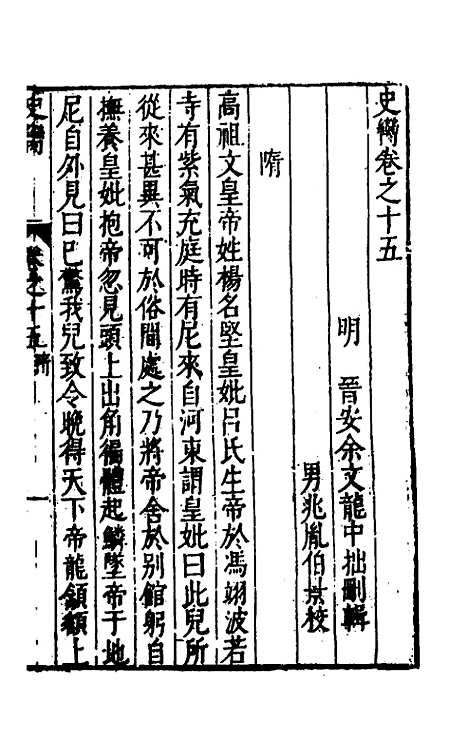 史臠卷之十五
明 晉安余文龍中拙刪輯
男兆胤伯京校
隋
高祖文皇帝姓楊名堅皇妣呂氏生帝於馮翊波若
寺有紫氣充庭時有尼來自河東謂皇妣曰此兒所
從來甚異不可於俗間處之乃將帝舍於别館躬自
撫養皇妣抱帝忽見頭上出角徧體起鱗墜帝于地
尼自外見曰已驚我兒致令晚得天下帝龍頷額上
史臠 卷之十五 隋 一